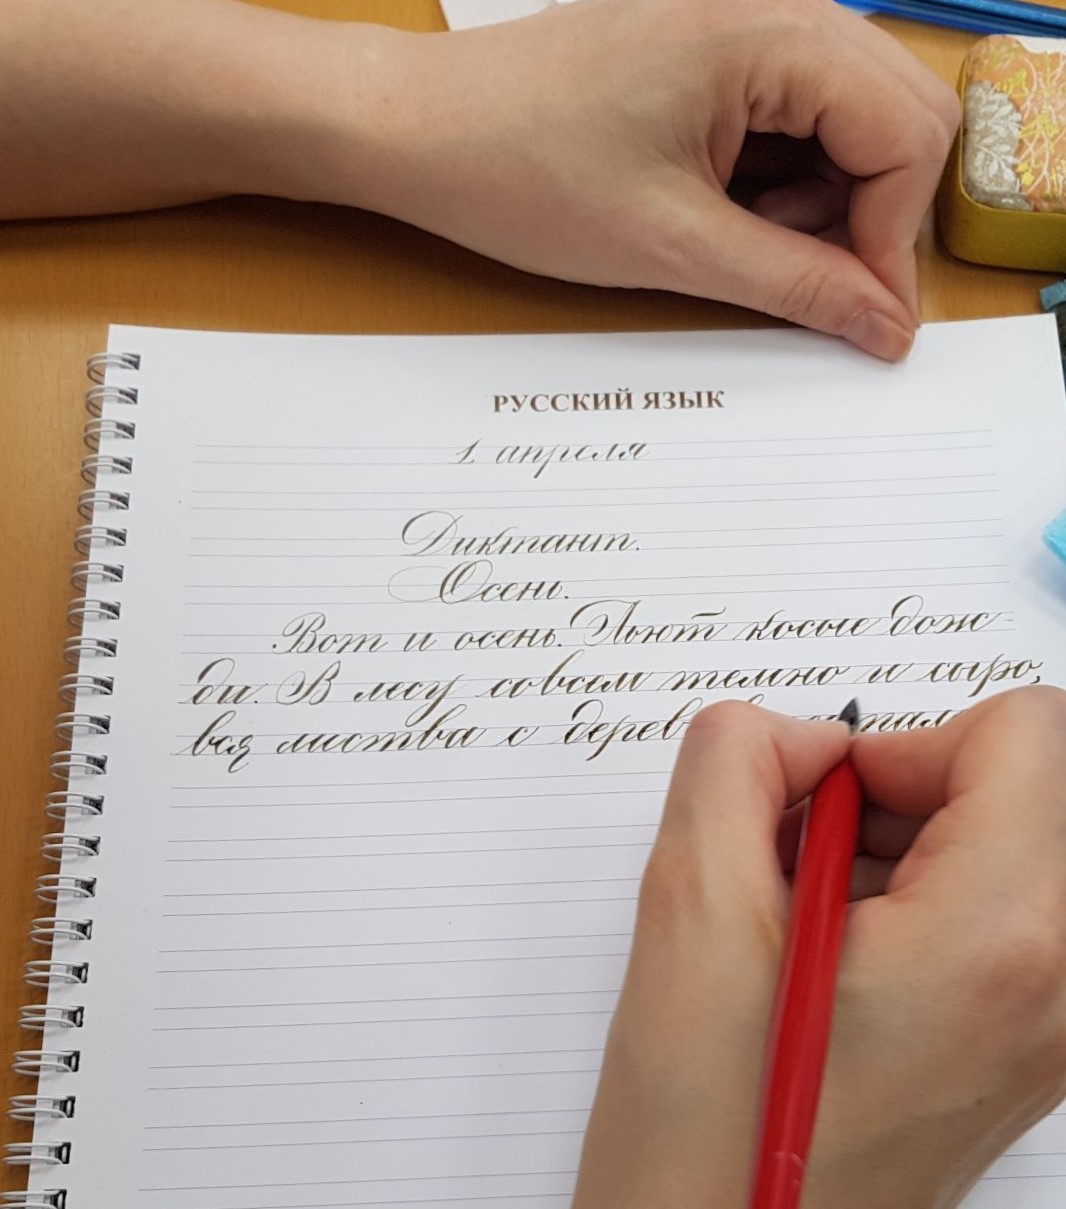 РУССКИЙ ЯЗЫК
1 апреля
Диктант.
Осень.
Вот и осень. Льют косые дож-
ди. В лесу совсем темно и сыро,
вся листва с